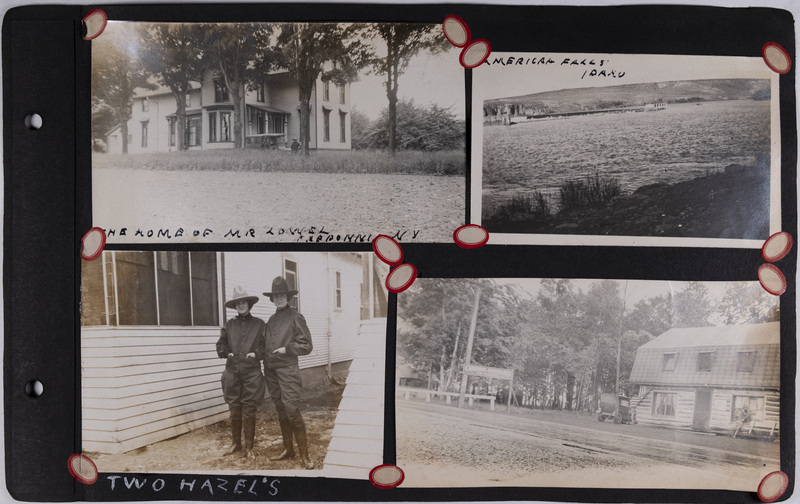 THE HOME OF MR LOWEL
FREDONNIA NY
AMERICAN FALLS
IDAHO
TWO HAZEL'S